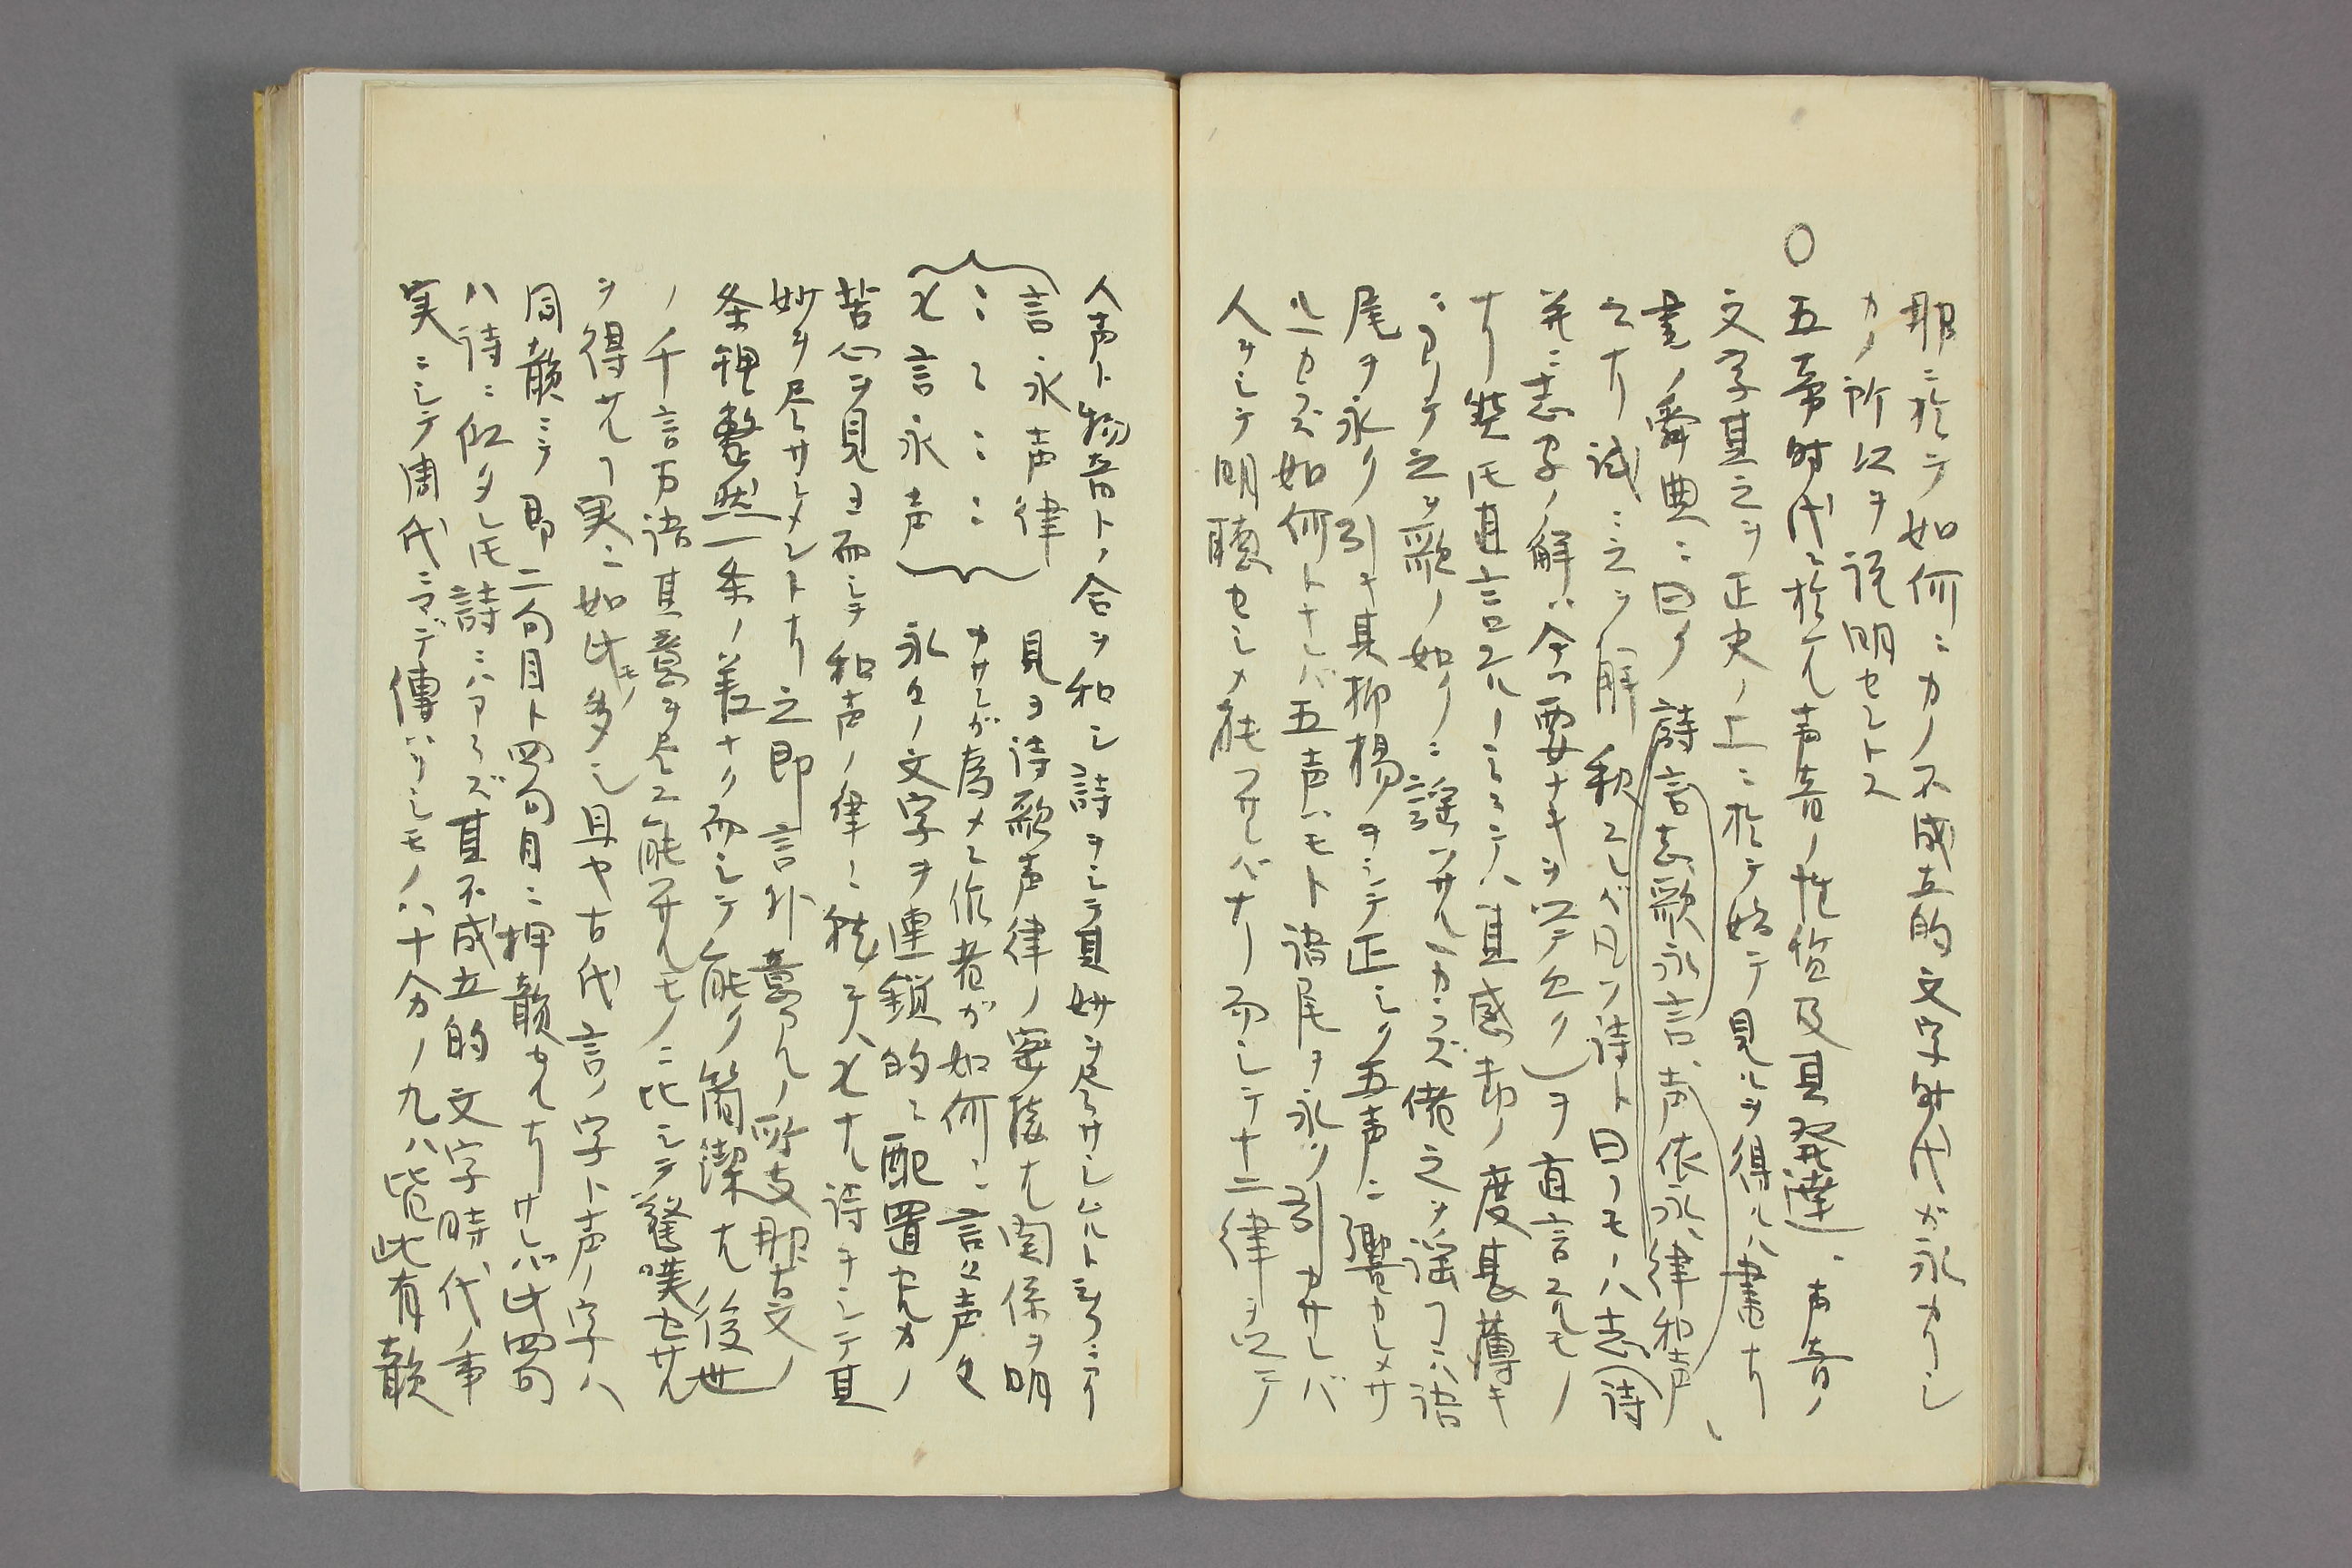 那ニ於テ如何ニカノ不成立的文字時代ガ永カリシ
カノ所以ヲ説明セントス
○五帝時代ニ於ケル声音ノ性質及其発達、声音ノ
文字其之ヲ正史ノ上ニ於テ始テ見ルヲ得ルハ書ナリ
書ノ舜典ニ曰ク詩言志歌永言、声依永、律和声、
之ナリ試ニ之ヲ解釈スレバ凡ソ詩ト曰フモノハ志(詩
并ニ志字ノ解ハ今要ナキヲ以テ欠ク)ヲ直言スルモノ
ナリ然氏直言スルノミニテハ其感情ノ度甚薄キ
ニヨリテ之ヲ歌ノ如クニ謡ハザルベカラズ偖之ヲ謡フニハ語
尾ヲ永ク引キ其抑揚ヲシテ正シク五声ニ
ルベカラズ如何トナレバ五声ハモト語尾ヲ永ク引カザレバ
人ヲシテ明聴セシメ能ハザレバナリ而シテ十二律ヲ以テ
人声ト物音トノ合ヲ和シ詩ヲシテ其妙ヲ尽サシムルト云フニアリ
言永声律 見ヨ詩歌声律ノ密接ナル関係ヲ明
カサンガ為メニ作者ガ如何ニ言永声々
志言永声 永々ノ文字ヲ連鎖的ニ配置セルカノ
苦心ヲ見ヨ而シテ和声ノ律ニ 詩ヲシテ其
妙ヲ尽サシメントナリ之即言外意アルノ所支那古文ノ
条理整然一条ノ差ナク而シテ能ク簡潔ナル後世
ノ千言万語其意ヲ尽ス能ハザルモノニ比シテ驚嘆セザル
ヲ得ザルコ実ニ如此モノ多シ且ヤ古代言ノ字ト声ノ字ハ
同韻ニテ 二句目ト四句目ニ押韻セルナリサレバ此四句
ハ詩ニ似タレ氏詩ニハアラズ其不成立的文字時代ノ事
実ニシテ周代ニマデ傳ハリシモノハ十分ノ九八皆此有韻